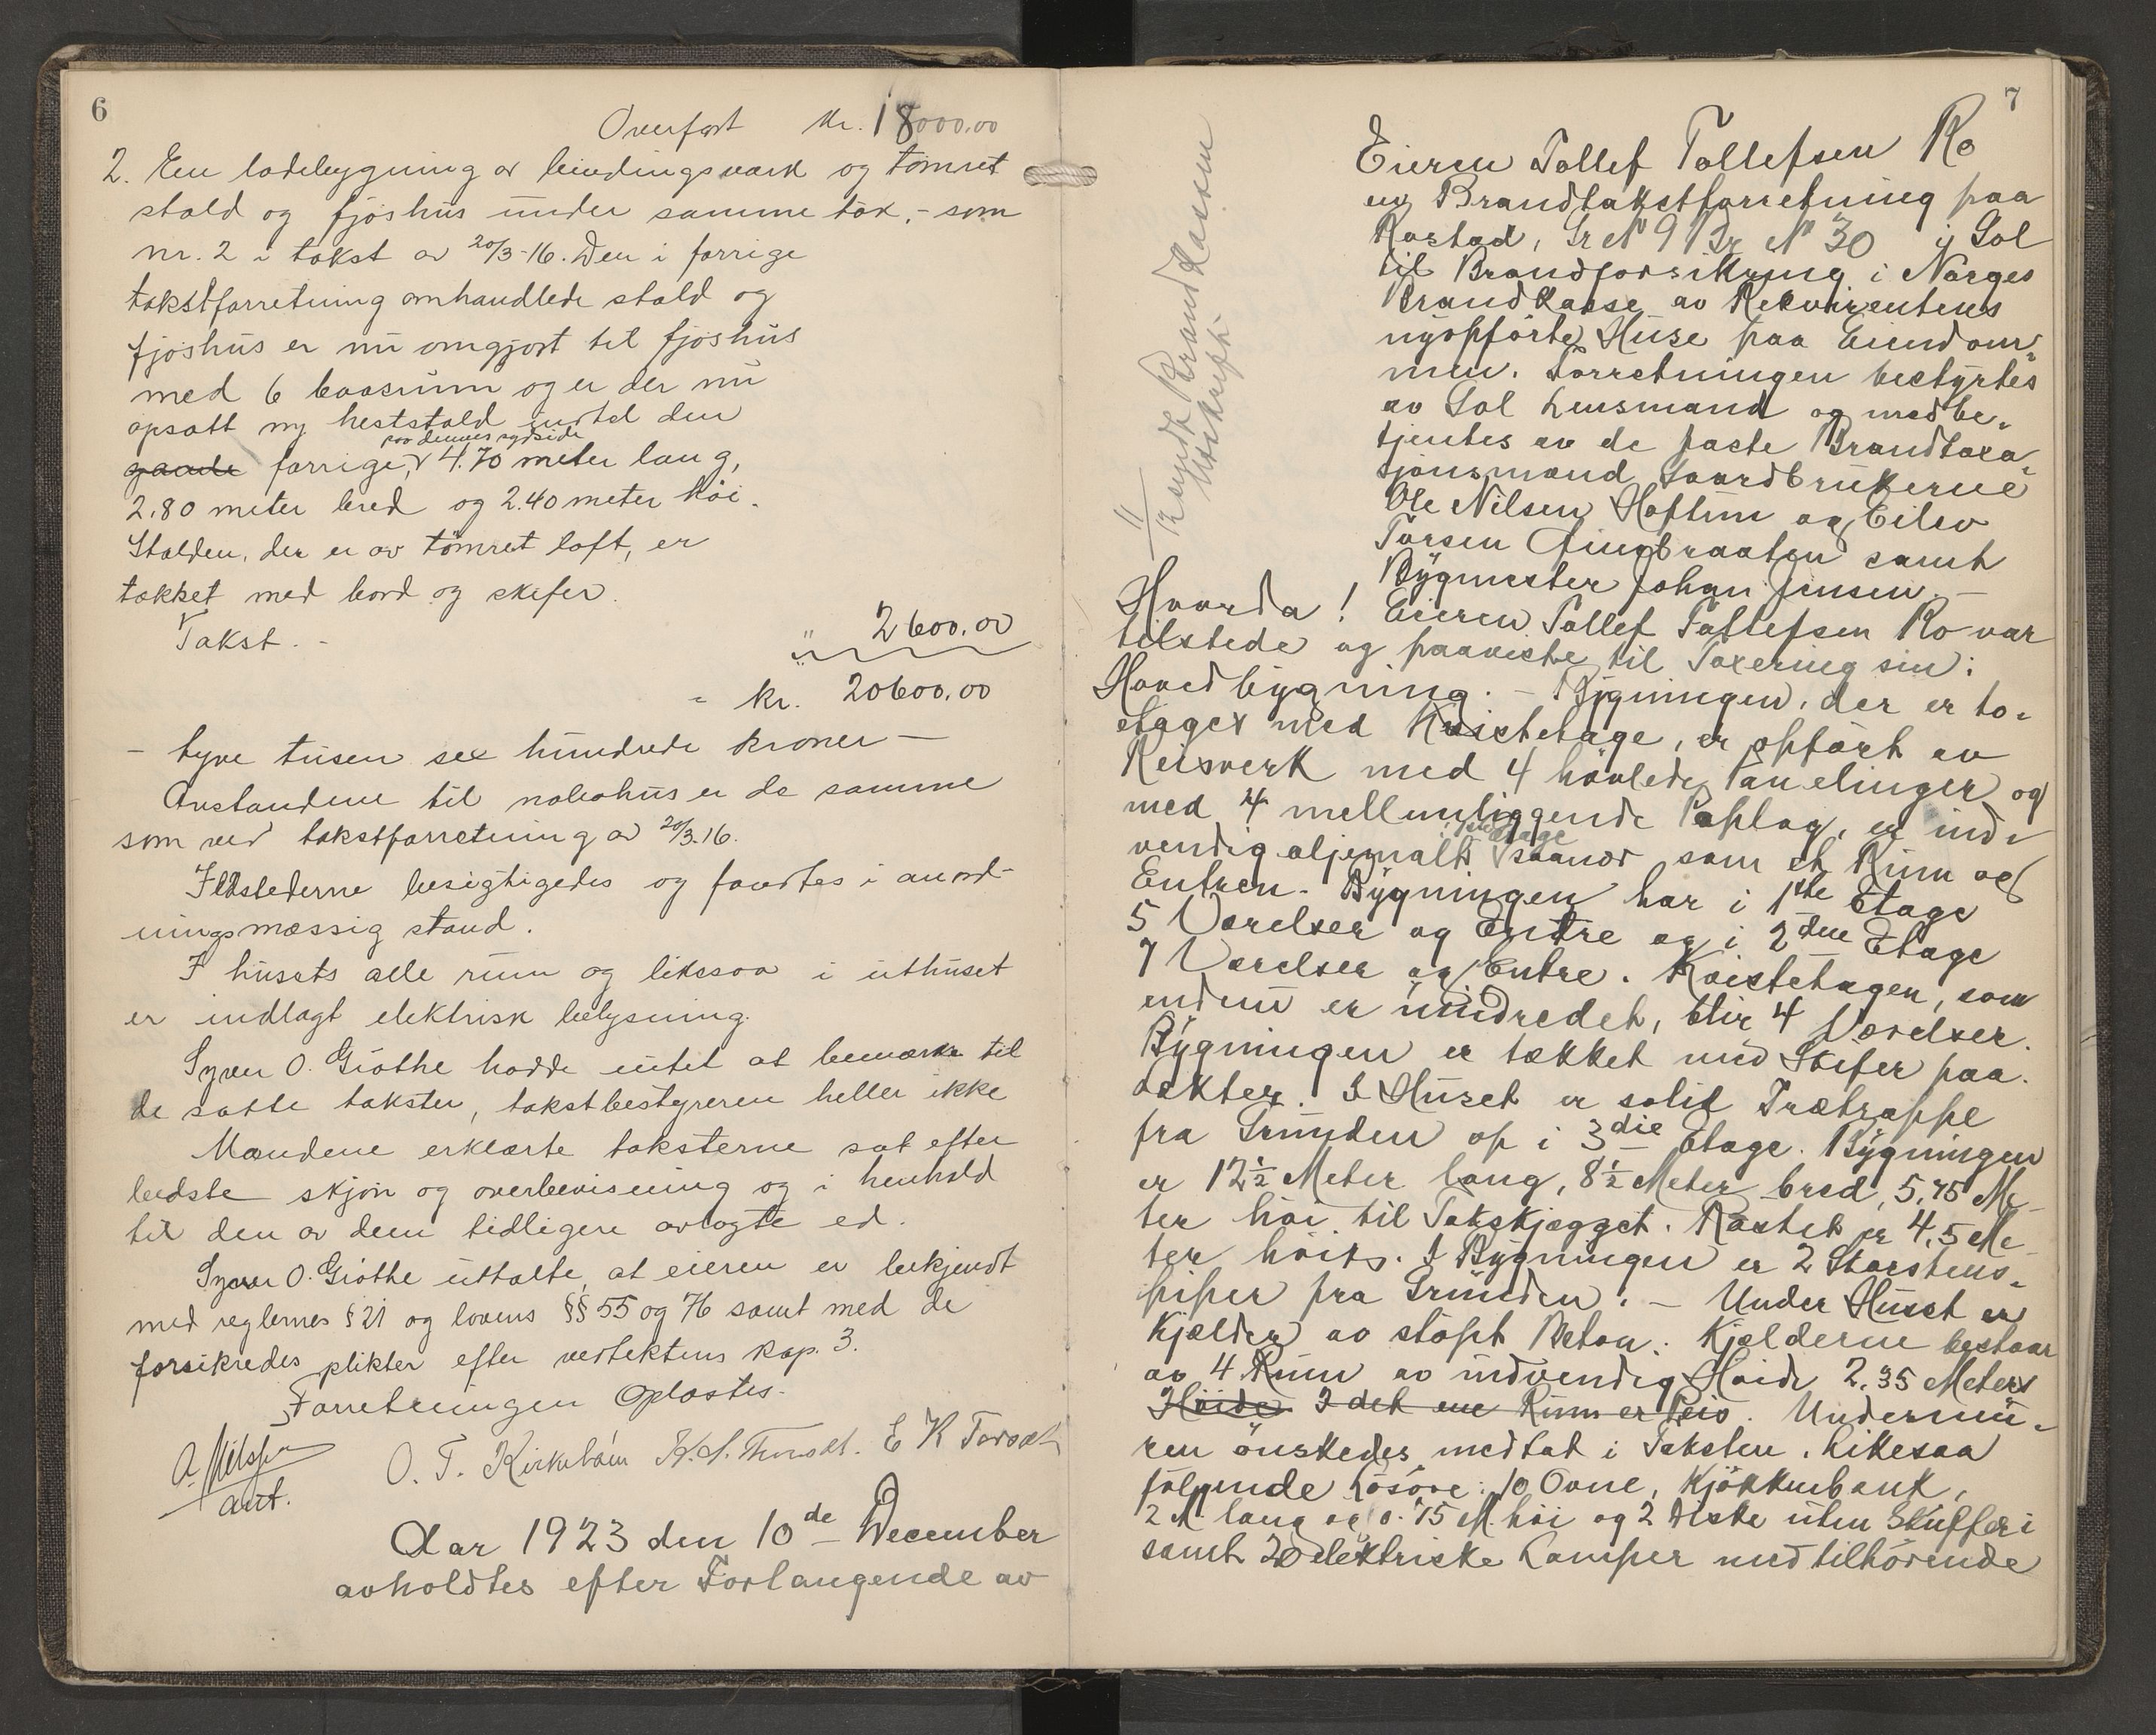 6
Overført kr. 18000.00
2. En ladebygning av bindingsverk og tømret
stald og fjøshus under samme tak, - som
nr. 2 i takst av 20/3-16. Den i forrige
takstforretning omhandlede stald og
fjøshus er nu omgjort til fjøshus
med 6 baasrum og er der nu
opsatt ny heststald indtil den
gamle forrige, paa dennes sydside 4.70 meter lang,
2.80 meter bred og 2.40 meter høi.
Stalden, der er av tømret loft, er
tækket med bord og skifer.
Takst. - " 2600.00
= kr. 20600.00
- tyve tusen sex hundrede kroner -
Avstandene til nabohus er de samme
som ved takstforretning av 20/3.16.
Ildstederne besigtigedes og fandtes i anord-
ningsmæssig stand.
I husets alle rum og likesaa i uthuset
er indlagt elektrisk belysning.
Syver O. Grøthe hadde intet at bemærke til
de satte takster, takstbestyreren heller ikke
Mændene erklærte taksterne sat efter
bedste skjøn og overbevisning og i henhold
til den av dem tidligere avlagte ed.
Syver O. Grøthe uttalte, at eieren er bekjendt
med reglernes § 21 og lovens §§ 55 og 76 samt med de
forsikredes plikter efter vedtektens kap. 3.
Forretningen Oplæstes.
A. Nilssen
aut.
O. T. Kirkebøen E K Torsdt
Aar 1923 den 10de December
avholdtes efter Forlangende av
7
Eieren Tollef Tollefsen Ro
en Brandtakstforretning paa
Rostad, Gr N 9 Br N 30 i Sol
til Brandforsikring i Norges
Brandkasse av Rekvirentens
nyopførte Huse paa Eiendom-
men. Forretningen bestyrtes
av Sol Lensmand og medbe-
tjentes av de faste Brandtaxa-
tjonsmænd Gaardbrukerne
Ole Nilsen Haftun og Eilev
Torsen samt
Bygmester Johan Jensen. -
Brandkassen
Utskrift
Hvorda! Eieren Tollef Tollefsen Ro var
tilstede og paaviste til Taxering sin:
Hovedbygning. - Bygningen, der er to-
etages med Kvistetage, er opført av
Reisverk med 4 høvlede Panelinger og
med 4 mellemliggende Paplag, er ind-
vendig oljemalt i 1ste Etage saavel som et Rum og
Entreen. Bygningen har i 1ste Etage
5 Værelser og Entre og i 2den Etage
7 Værelser og Entre. Kvistetagen, som
endnu er uindredet, blir 4 Værelser.
Bygningen er tækket med Skifer paa
Lækter. I Huset er solid Trætrappe
fra Grunden op i 3die Etage. Bygningen
er 12½ Meter lang, 8½ Meter bred, 5,75 Me-
ter høi til Takskjægget. Røstet er 4,5 Me-
ter høit. I Bygningen er 2 Skorstens-
piper fra Grunden. - Under Huset er
Kjælder av støpt Beton. Kjælderne bestaar
av 4 Rum av indvendig Høide 2.35 Meters
Høide. I det ene Rum er Peis. Undermu-
ren ønskedes medtat i Taksten. Likesaa
følgende Løsøre: 10 Ovne, Kjøkkenbenk,
2 M. lang og 0.75 M høi og 2 Diske uten Skuffer i
samt 20 elektriske Lamper med tilhørende